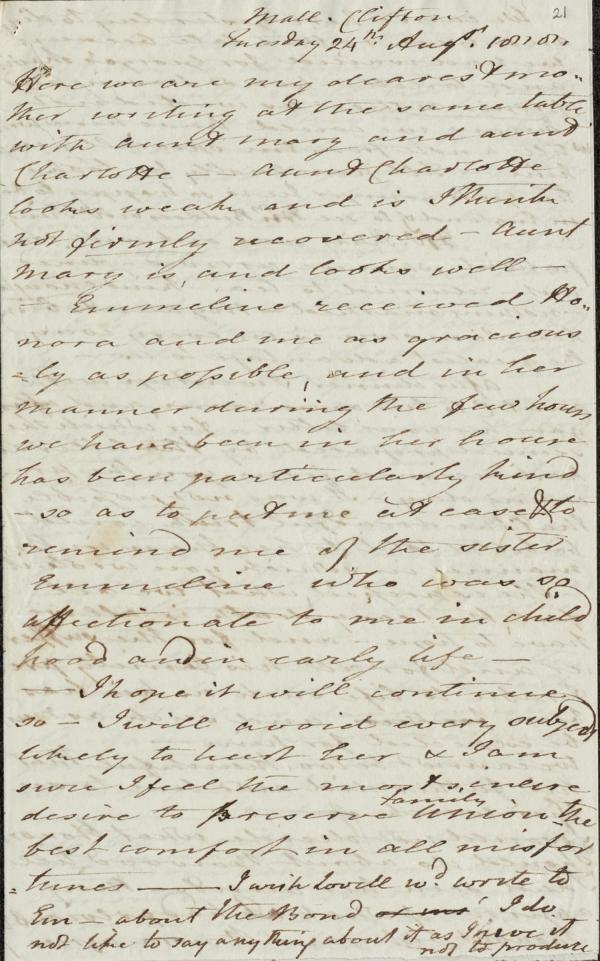 21
Mall. Clifton
Tuesday 24th. Augt.
Here we are my dearest mo-
ther writing at the same table
with aunt Mary and aunt
Charlotte — — Aunt Charlotte
looks weak and is I think
not firmly recovered — Aunt
Mary is, and looks well —
— Emmeline received Ho-
nora and me as gracious
-ly as possible, and in her
manner during the few hours
we have been in her house
has been particularly kind
- so as to put me at ease & to
remind me of the sister
Emmeline who was so
affectionate to me in child
hood and in early life —
— I hope it will continue
so — I will avoid every subject
likely to hurt her & I am
sure I feel the most sincere
desire to preserve Family Union - the
best comfort in all misfor
-tunes — I wish Lovell wd. write to
Em — about the Bond I do
not like to say anything about it as I
not to produce